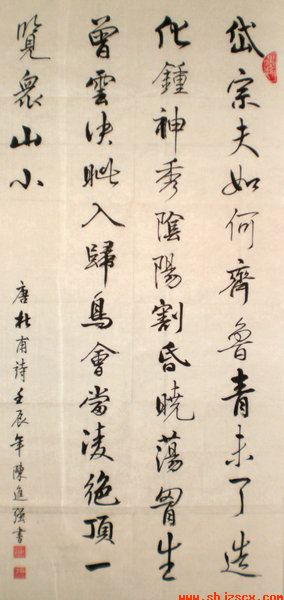 岱宗夫如何齊魯青未了造
化鍾神秀陰陽割昏曉蕩胷生
曾雲決眥入歸鳥會當凌絕頂一
覽衆山小
唐杜甫詩壬辰年陳進强書
www.shizscx.com